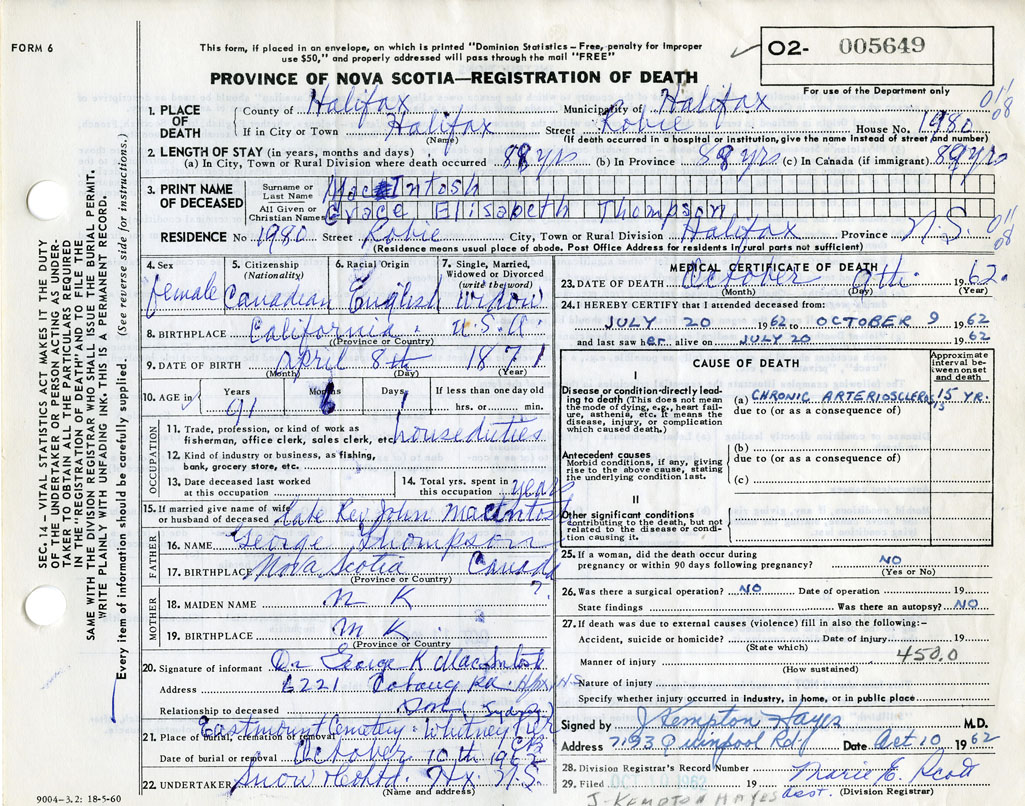 FORM 6
This form, if placed in an envelope, on which is printed "Dominion Statistics – Free, penalty for improper
use $50," and properly addressed will pass through the mail "FREE"
PROVINCE OF NOVA SCOTIA—REGISTRATION OF DEATH
O2- 005649
For use of the Department only
1. PLACE OF DEATH County of Halifax Municipality of Halifax
If in City or Town Halifax Street Robie House No. 1980
(Name) (If death occurred in a hospital or institution, give the name instead of street and number)
2. LENGTH OF STAY (in years, months and days)
(a) In City, Town or Rural Division where death occurred 88 yrs (b) In Province 88 yrs (c) In Canada (if immigrant) 89 yrs
3. PRINT NAME OF DECEASED Surname or Last Name MacIntosh
All Given or Christian Names Grace Elisabeth Thompson
RESIDENCE No. 1980 Street Robie City, Town or Rural Division Halifax Province N.S.
(Residence means usual place of abode. Post Office Address for residents in rural parts not sufficient)
4. Sex female
5. Citizenship (Nationality) Canadian
6. Racial Origin English
7. Single, Married, Widowed or Divorced (write the word) Widow
8. BIRTHPLACE California. U.S.A.
(Province or Country)
9. DATE OF BIRTH April 8th 1871
(Month) (Day) (Year)
10. AGE in Years 91 Months 6 Days 1 If less than one day old
hrs. or min.
OCCUPATION
11. Trade, profession, or kind of work as fisherman, office clerk, sales clerk, etc. house duties
12. Kind of industry or business, as fishing, bank, grocery store, etc.
13. Date deceased last worked at this occupation
14. Total yrs. spent in this occupation years
15. If married give name of wife or husband of deceased Late Rev John MacIntosh
FATHER
16. NAME George Thompson
17. BIRTHPLACE Nova Scotia Canada
(Province or Country)
MOTHER
18. MAIDEN NAME N K ?
19. BIRTHPLACE N K.
(Province or Country)
20. Signature of informant Dr George K MacIntosh
Address 6221 Rd. Hfx, NS
Relationship to deceased
21. Place of burial, cremation or removal Eastmount Cemetery. Whitney Pier
(Sydney) CB
Date of burial or removal October 10th 1962
22. UNDERTAKER Snow Hx. N.S.
(Name and address)
9004–3.2: 18-5-60
MEDICAL CERTIFICATE OF DEATH
23. DATE OF DEATH October 9th 62.
(Month) (Day) (Year)
24. I HEREBY CERTIFY that I attended deceased from:
JULY 20 1962 to OCTOBER 9 1962
and last saw her alive on JULY 20 1962
CAUSE OF DEATH
Approximate interval between onset and death
I
Disease or condition directly leading to death (This does not mean the mode of dying, e.g., heart failure, asthenia, etc. It means the disease, injury, or complication which caused death.)
(a) CHRONIC ARTERIOSCLEROSIS 15 YR.
due to (or as a consequence of)
Antecedent causes
Morbid conditions, if any, giving rise to the above cause, stating the underlying condition last.
(b)
due to (or as a consequence of)
(c)
II
Other significant conditions
contributing to the death, but not related to the disease or condition causing it.
25. If a woman, did the death occur during pregnancy or within 90 days following pregnancy? NO
(Yes or No)
26. Was there a surgical operation? NO Date of operation 19
State findings Was there an autopsy? NO
27. If death was due to external causes (violence) fill in also the following:–
Accident, suicide or homicide? Date of injury 19
(State which)
Manner of injury 450.0
(How sustained)
Nature of injury
Specify whether injury occurred in industry, in home, or in public place
Signed by J Kempton Hayes M.D.
Address 7193 Quinpool Rd. Date Oct 10 1962
28. Division Registrar's Record Number
29. Filed OCT 10 1962 Marie E. Scott
asst. (Division Registrar)
J. KEMPTON HAYES
SEC. 14– VITAL STATISTICS ACT MAKES IT THE DUTY
OF THE UNDERTAKER OR PERSON ACTING AS UNDER-
TAKER TO OBTAIN ALL THE PARTICULARS REQUIRED
IN THE "REGISTRATION OF DEATH" AND TO FILE THE
SAME WITH THE DIVISION REGISTRAR WHO SHALL ISSUE THE BURIAL PERMIT.
WRITE PLAINLY WITH UNFADING INK. THIS IS A PERMANENT RECORD.
Every item of information should be carefully supplied. (See reverse side for instructions.)